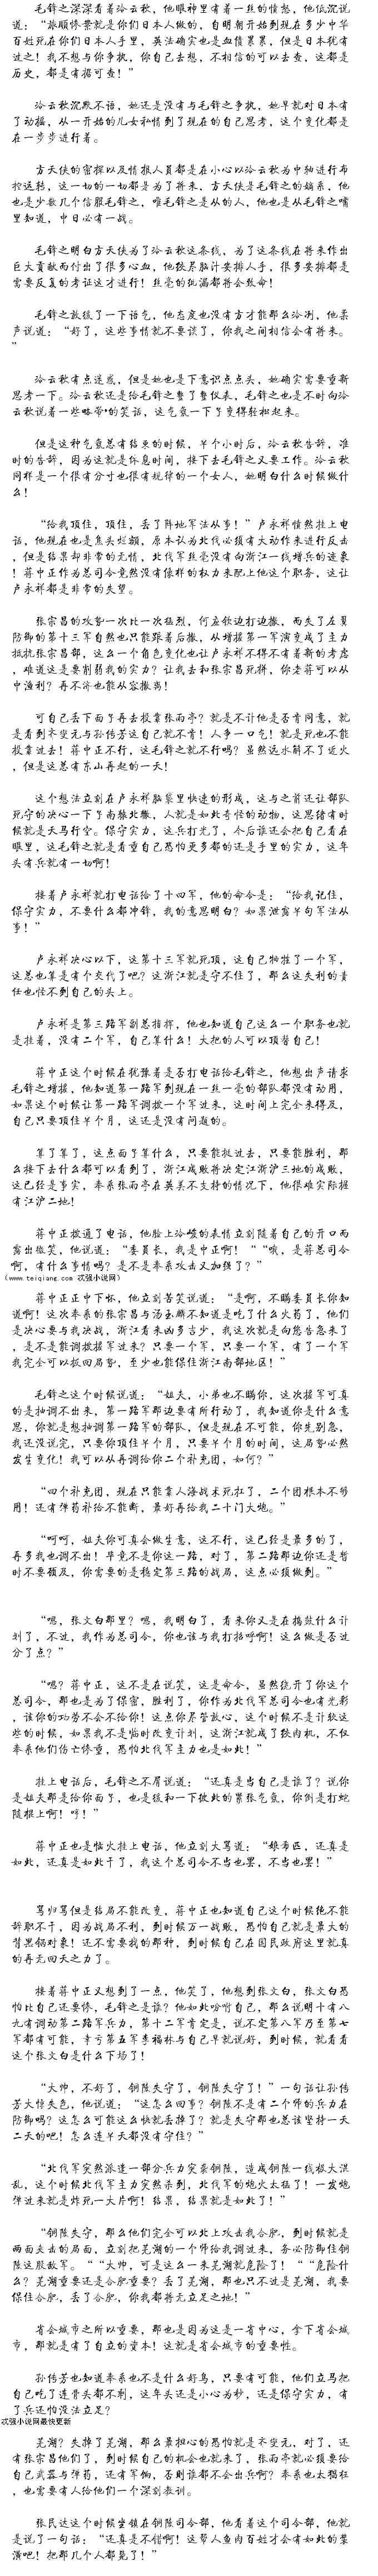 毛锋之深深看着泠云秋，他眼神里有着一丝的愤怒，他低沉说
道：“旅顺惨案就是你们日本人做的，自明朝开始到现在多少中华
百姓死在你们日本人手里，英法确实也是血债累累，但是日本犹有
过之！我不想与你争执，你自己去想，不相信的可以去查，这都是
历史，都是有据可查！”
泠云秋沉默不语，她还是没有与毛锋之争执，她早就对日本有
了动摇，从一开始的儿女私情到了现在的自己思考，这个变化都是
在一步步进行着。
方天侠的密探以及情报人员都是在小心以泠云秋为中轴进行布
控运转，这一切的一切都是为了将来，方天侠是毛锋之的嫡系，他
也是少数几个信服毛锋之，唯毛锋之是从的人，他也是从毛锋之嘴
里知道，中日必有一战。
毛锋之明白方天侠为了泠云秋这条线，为了这条线在将来作出
巨大贡献而付出了很多心血，他殚尽脑汁安排人手，很多安排都是
需要反复的考证这才进行！丝毫的纰漏都将会致命！
毛锋之放缓了一下语气，他态度也没有方才那么泠冽，他柔
声说道：“好了，这些事情就不要谈了，你我之间相信会有将来。
”
泠云秋有点迷惑，但是她也是下意识点点头，她确实需要重新
思考一下。泠云秋还是给毛锋之整了整仪表，毛锋之也是不时向泠
云秋说着一些略带*的笑话，这气氛一下子变得轻松起来。
但是这种气氛总有结束的时候，半个小时后，泠云秋告辞，准
时的告辞，因为这就是休息时间，接下去毛锋之又要工作。泠云秋
同样是一个很有分寸也很有规律的一个女人，她明白什么时候做什
么！
“给我顶住，顶住，丢了阵地军法从事！”卢永祥愤然挂上电
话，他现在也是焦头烂额，原本认为北伐必须有大动作来进行反击
，但是结果却非常的无情，北伐军丝毫没有向浙江一线增兵的迹象
！蒋中正作为总司令竟然没有像样的权力来配上他这个职务，这让
卢永祥都是非常的失望。
张宗昌的攻势一次比一次猛烈，何应钦边打边撤，而失了左翼
防御的第十三军自然也只能跟着后撤，从增援第一军演变成了主力
抵抗张宗昌部，这么一个角色变化也让卢永祥不得不有着新的考虑
，难道这是要削弱我的实力？让我去和张宗昌死拼，你老蒋可以从
中渔利？再不济也能从容撤离！
可自己丢下面子再去投靠张雨亭？就是不计他是否肯同意，就
是看到齐燮元与孙传芳这自己就不肯！人争一口气！就是死也不能
投靠过去！蒋中正不行，这毛锋之就不行吗？虽然远水解不了近火
，但是这总有东山再起的一天！
这个想法立刻在卢永祥脑袋里快速的形成，这与之前还让部队
死守的决心一下子南辕北辙，人就是如此奇怪的动物，这思绪有时
候就是天马行空。保守实力，这兵打光了，今后谁还会把自己看在
眼里，这毛锋之就是看重自己恐怕更多都的还是手里的实力，这年
头有兵就有一切啊！
接着卢永祥就打电话给了十四军，他的命令是：“给我记住，
保守实力，不要什么都冲锋，我的意思明白？如果泄露半句军法从
事！”
卢永祥决心以下，这第十三军就死顶，这自己牺牲了一个军，
这总也算是有个交代了吧？这浙江就是守不住了，那么这失利的责
任也怪不到自己的头上。
卢永祥是第三路军副总指挥，他也知道自己这么一个职务也就
是挂着，没有二个军，自己算什么！大把的人可以顶替自己！
蒋中正这个时候在犹豫着是否打电话给毛锋之，他想出声请求
毛锋之增援，他知道第一路军到现在一丝一毫的部队都没有动用，
如果这个时候让第一路军调拨一个军过来，这时间上完全来得及，
自己只要顶住半个月，这还是没有问题的。
算了算了，这点面子算什么，只要能挺过去，只要能胜利，那
么接下去什么都可以看到了，浙江成败将决定江浙沪三地的成败，
这已经是事实，奉系张雨亭在英美不支持的情况下，他很难实际握
有江沪二地！
蒋中正拨通了电话，他脸上泠峻的表情立刻随着自己的开口而
露出微笑，他说道：“委员长，我是中正啊！”“哦，是蒋总司令
啊，有什么事情吗？是不是奉系攻击又加强了？”
（www.teiqiang.com 忒强小说网）
蒋中正正中下怀，他立刻苦笑说道：“是啊，不瞒委员长你知
道啊！这次奉系的张宗昌与汤玉麟不知道是吃了什么火药了，他们
是决心要与我决战，浙江看来凶多吉少，我这次就是向您告急来了
，是不是能调拨援军过来？只要一个军，只要一个军，有了一个军
我完全可以扳回局势，至少也能保住浙江南部地区！”
毛锋之这个时候说道：“姐夫，小弟也不瞒你，这次援军可真
的是抽调不出来，第一路军那边要有所行动了，我知道你是什么意
思，你就是想抽调第一路军的部队，但是现在不可能，你先别急，
我还没说完，只要你顶住半个月，只要半个月的时间，这局势必然
发生变化！我可以从再调给你二个补充团，如何？”
“四个补充团，现在只能靠人海战术死扛了，二个团根本不够
用！还有弹药补给不能断，最好再给我二十门大炮。”
“呵呵，姐夫你可真会做生意，这不行，这已经是最多的了，
再多我也调不出！毕竟不是你这一路，对了，第二路那边你还是暂
时不要顾及，你需要的是稳定第三路的战局，这点必须做到。”
“嗯，张文白那里？嗯，我明白了，看来你又是在捣鼓什么计
划了，不过，我作为总司令，你也该与我打招呼啊！这么做是否过
分了点？”
“嗯？蒋中正，这不是在说笑，这是命令，虽然绕开了你这个
总司令，那也是为了保密，胜利了，你作为北伐军总司令也有光彩
，该你的功劳不会不给你！这点你尽管放心，这个时候不是计较这
些的时候，如果我不是临时改变计划，这浙江就成了绞肉机，不仅
奉系他们伤亡惨重，恐怕北伐军主力也是如此！”
挂上电话后，毛锋之不屑说道：“还真是当自己是谁了？说你
是姐夫那是给你面子，也是缓和一下彼此的紧张气氛，你倒是打蛇
随棍上啊！哼！”
蒋中正也是恼火挂上电话，他立刻大骂道：“娘希匹，还真是
如此，还真是如此干了，我这个总司令不当也罢，不当也罢！”
骂归骂但是结局不能改变，蒋中正也知道自己这个时候绝不能
辞职不干，因为战局不利，到时候万一战败，恐怕自己就是最大的
背黑锅对象！还不需要找的那种，到时候自己在国民政府这里就真
的再无回天之力了。
接着蒋中正又想到了一点，他笑了，他想到张文白，张文白恐
怕比自己还要惨，毛锋之是谁？他如此吩咐自己，那么说明十有八
九有调动第二路军兵力，第十二军肯定是，说不定第八军乃至第七
军都有可能，幸亏第五军李福林与自己早就说好，到时候，就看看
这个张文白是什么下场了！
“大帅，不好了，铜陵失守了，铜陵失守了！”一句话让孙传
芳大惊失色，他说道：“这怎么回事？铜陵不是有二个师的兵力在
防御吗？这怎么可能这么快就丢掉了？就是失守那也总该坚持一天
二天的吧！怎么连半天都没有守住？”
“北伐军突然派遣一部分兵力突袭铜陵，造成铜陵一线极大混
乱，这个时候北伐军主力突然杀到，北伐军的炮火太猛了！一发炮
弹过来就是炸死一大片啊！结果，结果就是如此了！”
“铜陵失守，那么他们完全可以北上攻击我合肥，到时候就是
两面夹击的局面，立刻把芜湖的一个师给我调过来，务必防御住铜
陵这股敌军。”“大帅，可是这么一来芜湖就危险了！”“危险什
么？芜湖重要还是合肥重要？丢了芜湖，那也只不过是芜湖，我要
保住合肥，丢了合肥，你我都将无立足之地！”
省会城市之所以重要，那也是因为这是一省中心，拿下省会城
市，那就是有了自立的资本！这就是省会城市的重要性。
孙传芳也知道奉系也不是什么好鸟，只要有可能，他们立马把
自己吃了连骨头都不剩，这年头还是小心为妙，还是保守实力，有
了兵还怕没法立足？
忒强小说网最快更新
芜湖？失掉了芜湖，那么最担心的恐怕就是齐燮元，对了，还
有张宗昌他们了，到时候自己的机会也就来了，张雨亭就必须要给
自己武器与弹药，还有军饷，否则谁都不会出兵啊？奉系也太猖狂
，也需要有人给他们一个深刻教训。
张民达这个时候坐镇在铜陵司令部，他看着这个司令部，他就
是说了一句话：“还真是不错啊！这帮人鱼肉百姓才会有如此的装
潢吧！把那几个人都毙了！”